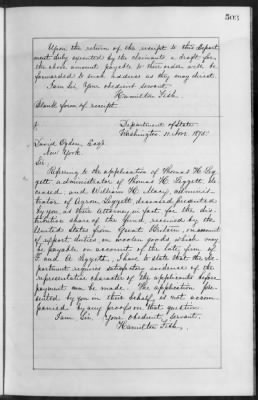 503
Upon the return of the receipt to this depart
ment duly executed by the claimants, a draft for
the above amount payable to their order will be
forwarded to such address as they may direct.
I am Sir Your obedient servant.
Hamilton Fish.
Blank form of receipt
Department of State
Washington 11. Nov. 1875.
David Ogden, Esqr
New York
Sir.
Referring to the application of Thomas H. Leg
gett, administrator of Thomas H. Leggett, de
ceased, and William H. Macy, adminis=
trator of Aaron Leggett, deceased presented
by you, as their Attorney in fact, for the dis=
tributive share of the fund received by the
United States from Great Britain, on account
of export duties on woolen goods which may
be payable, on account of the late firm of
T. and A. Leggett. I have to state that the De=
partment requires satisfactory evidence of the
representative character of the applicants before
payment can be made. The application pre
sented by you in their behalf, is not accom
panied by any proofs on that question.
I am Sir. Your obedient servant.
Hamilton Fish.